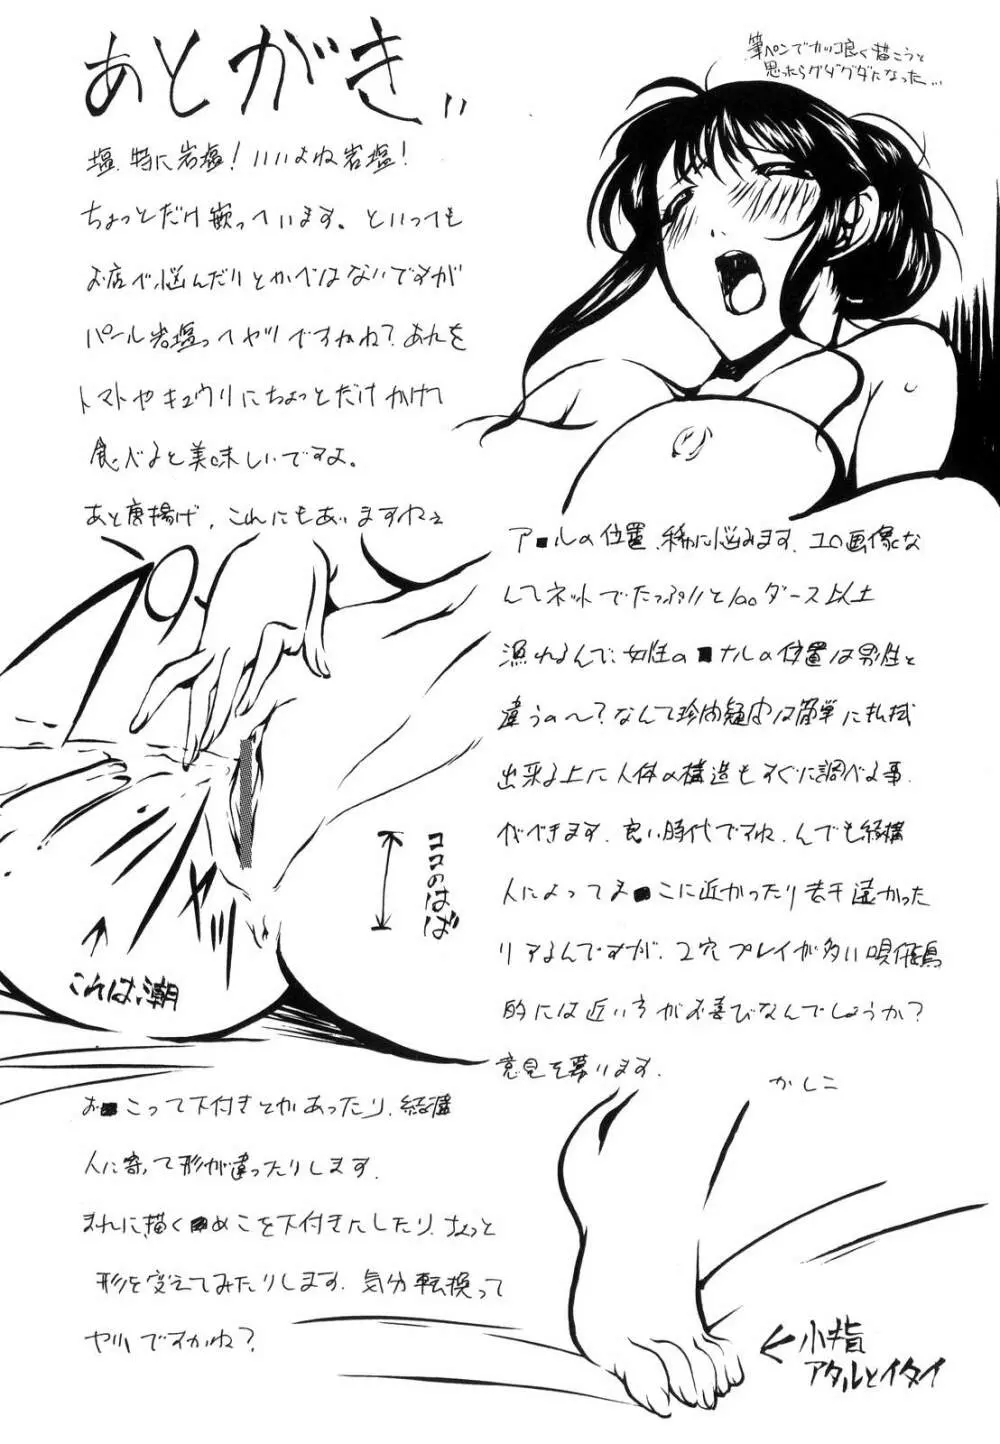 あとがき〃
筆ペンでカッコ良く描こうと
思ったらグダグダになった…
塩、特に岩塩！いいよね岩塩！
ちょっとだけ嵌っています。といっても
お店で悩んだりとかではないですが
パール岩塩ってヤツですかね？あれを
トマトやキュウリにちょっとだけかけて
食べると美味しいですよ。
あと唐揚げ、これにもあいますねぇ
ア■ルの位置、稀に悩みます、エロ画像な
んてネットでたっぷりと100ダース以上
漁れるんで、女性の■ナルの位置は男性と
違うの〜？なんて珍内疑惑は簡単に払拭
出来る上に人体の構造もすぐに調べる事
ができます。良い時代ですね、んでも結構
人によってま■こに近かったり若干遠かった
りアるんですが、2穴プレイが多い唄飛鳥
的には近い方がお喜びなんでしょうか？
意見を募ります。
かしこ
プシ
ヤッ
ココのはば
これは、潮
お■こって下付きとかあったり、結構
人に寄って形が違ったりします。
まれに描く■めこを下付きにしたり、ちょっと
形を変えてみたりします、気分転換って
ヤツですかね？
小指
アタルとイタイ